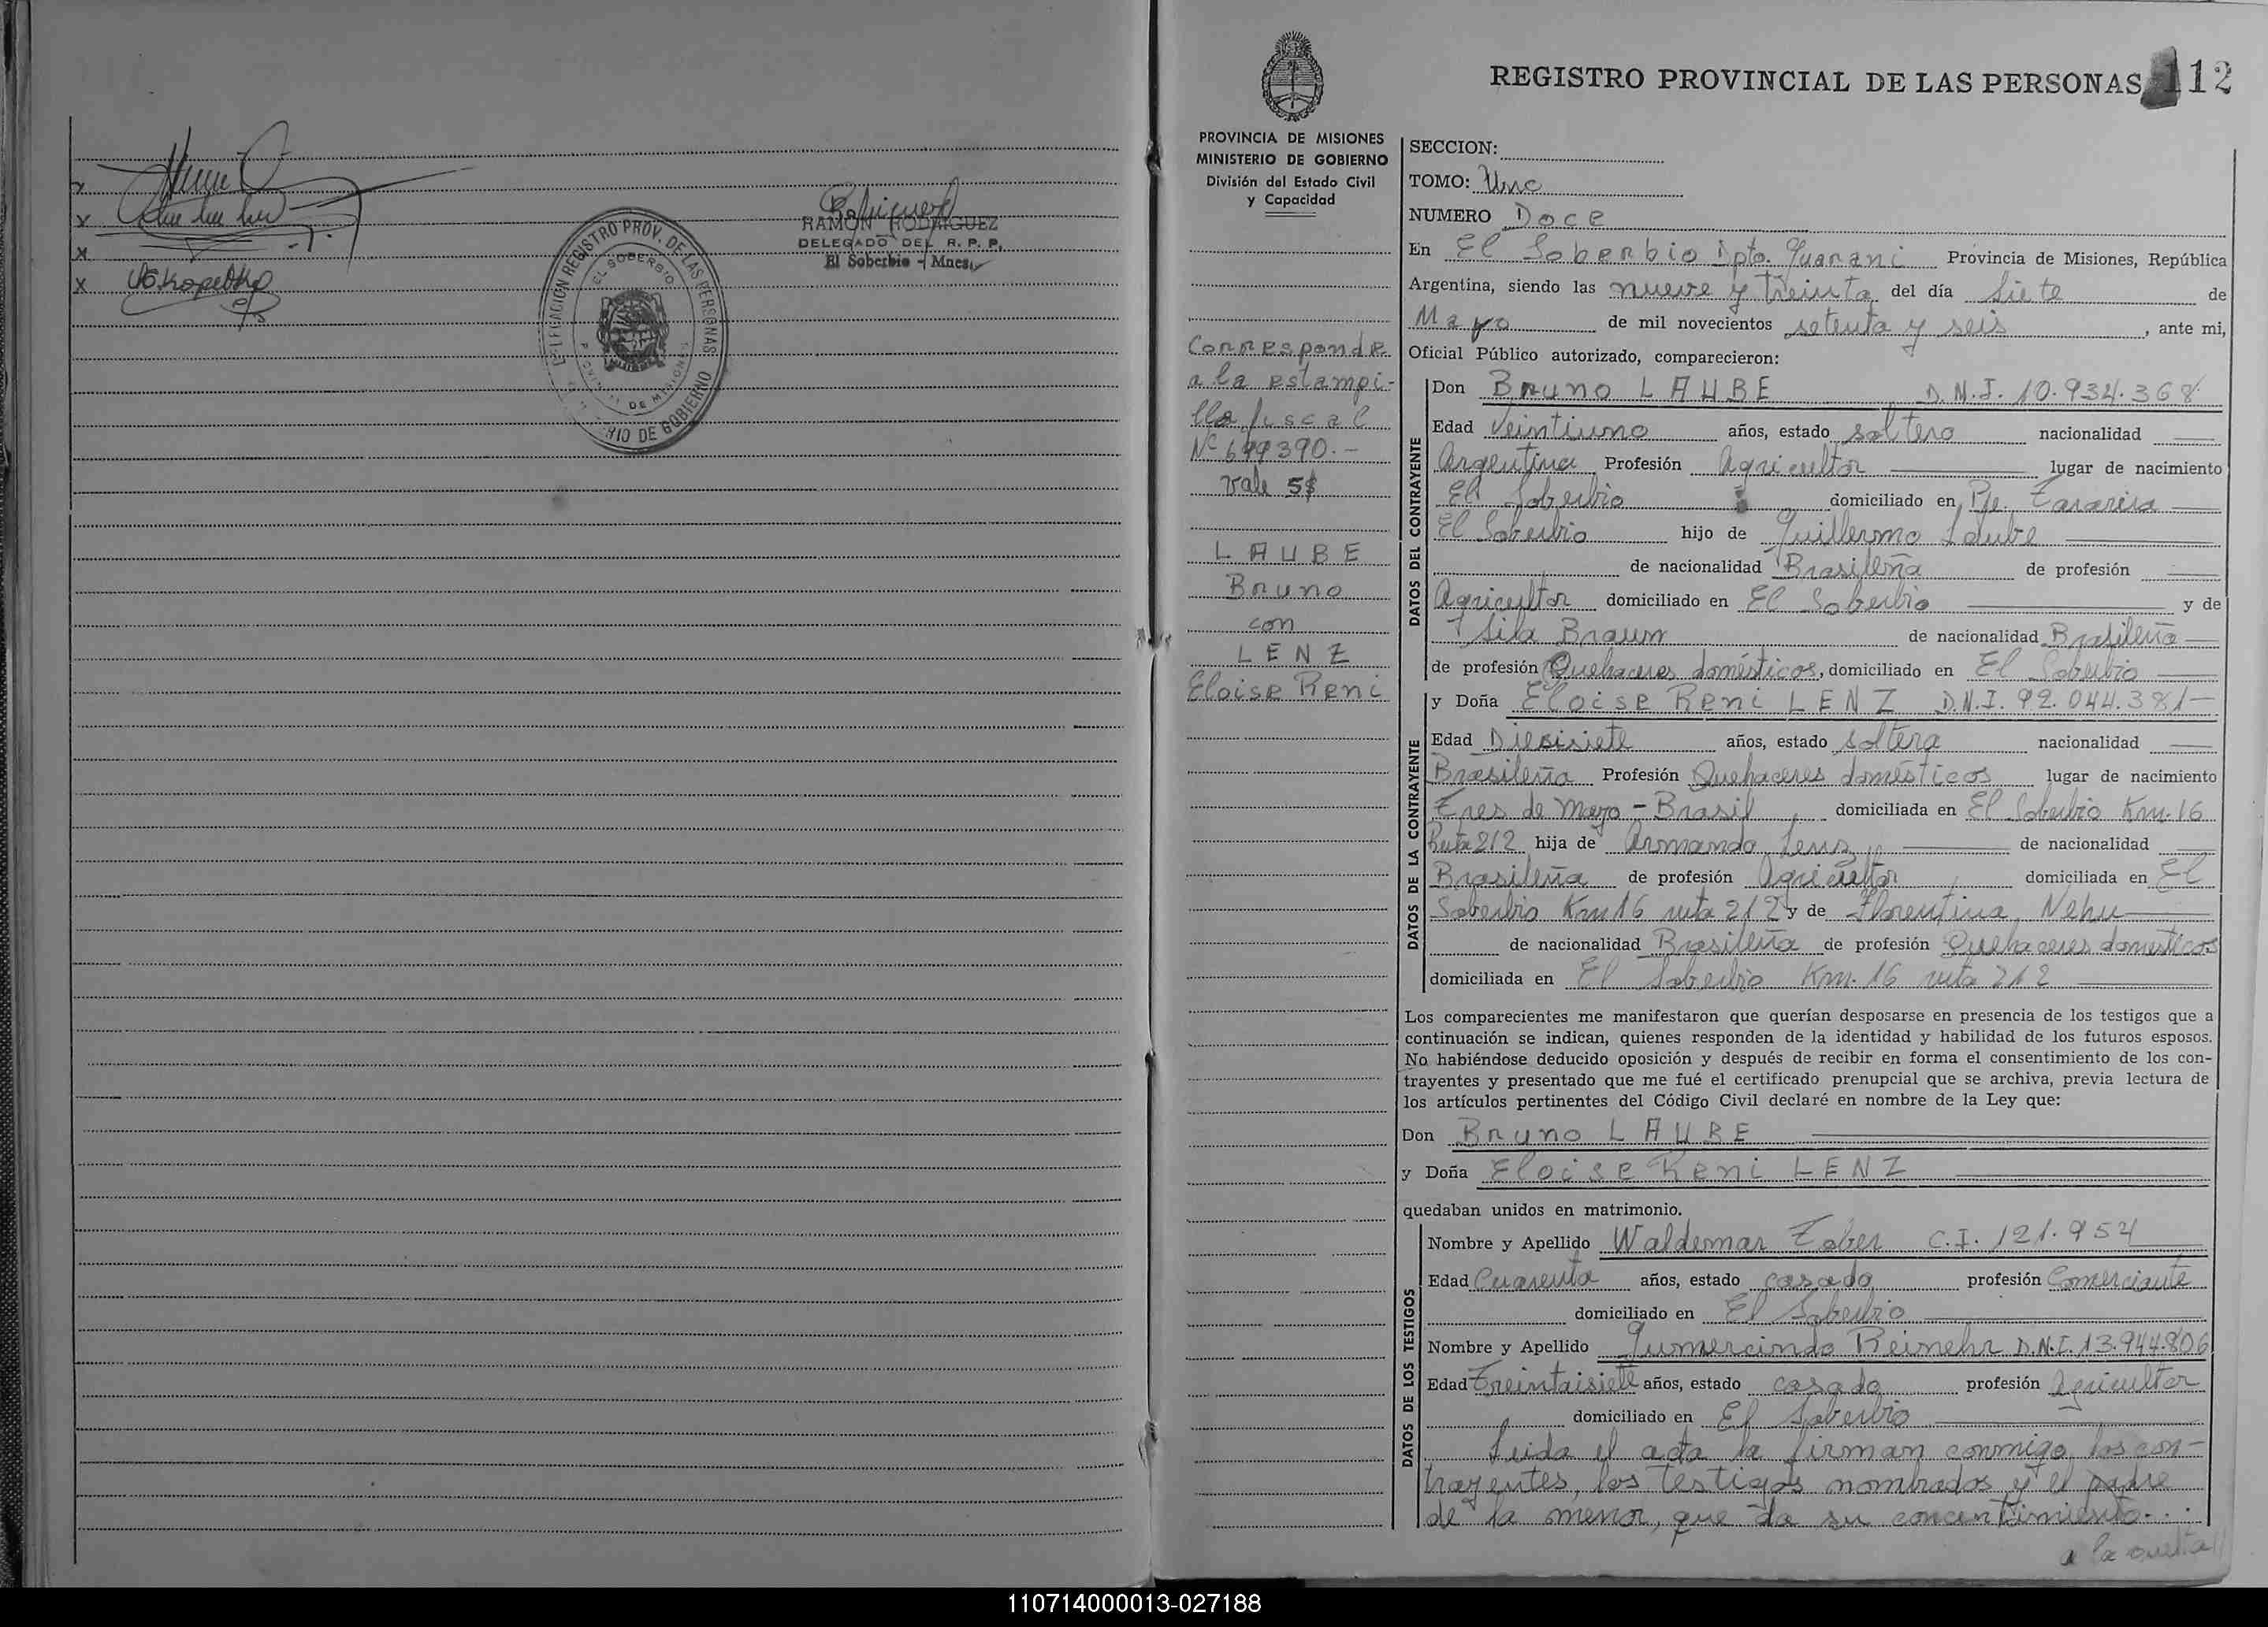 RAMON RODRIGUEZ
DELEGADO DEL R. P. P.
El Soberbio - Mnes.
DELEGACIÓN REGISTRO PROV. DE LAS PERSONAS
EL SOBERBIO
DE MISIONES
RIO DE GOBIERNO
REGISTRO PROVINCIAL DE LAS PERSONAS 112
PROVINCIA DE MISIONES
MINISTERIO DE GOBIERNO
División del Estado Civil
y Capacidad
Corresponde
a la estampi-
lla fiscal
Nº 699390.-
Vale 5$
LAUBE
Bruno
con
LENZ
Eloise Reni
SECCION:
TOMO: Uno
NUMERO Doce
En El Soberbio Dpto. Guarani Provincia de Misiones, República
Argentina, siendo las nueve y treinta del día Siete de
Mayo de mil novecientos setenta y seis, ante mi,
Oficial Público autorizado, comparecieron:
DATOS DEL CONTRAYENTE
Don Bruno LAUBE D.N.I. 10.934.368
Edad Veintiuno años, estado soltero nacionalidad
Argentina Profesión Agricultor lugar de nacimiento
El Soberbio domiciliado en Pje.
El Soberbio hijo de Guillermo Laube
de nacionalidad Brasileña de profesión
Agricultor domiciliado en El Soberbio y de
Braun de nacionalidad Brasileña
de profesión Quehaceres domésticos, domiciliado en El Soberbio
DATOS DE LA CONTRAYENTE
y Doña Eloise Reni LENZ D.N.I. 92.044.381-
Edad Diesisiete años, estado soltera nacionalidad
Brasileña Profesión Quehaceres domésticos lugar de nacimiento
Tres de Mayo - Brasil domiciliada en El Soberbio Km. 16
Ruta 212 hija de Armando Lenz de nacionalidad
Brasileña de profesión Agricultor domiciliada en El
Soberbio Km 16 ruta 212 y de Florentina Nehu
de nacionalidad Brasileña de profesión Quehaceres domesticos
domiciliada en El Soberbio Km. 16 ruta 212
Los comparecientes me manifestaron que querían desposarse en presencia de los testigos que a
continuación se indican, quienes responden de la identidad y habilidad de los futuros esposos.
No habiéndose deducido oposición y después de recibir en forma el consentimiento de los con-
trayentes y presentado que me fué el certificado prenupcial que se archiva, previa lectura de
los artículos pertinentes del Código Civil declaré en nombre de la Ley que:
Don Bruno LAUBE
y Doña Eloise Reni LENZ
quedaban unidos en matrimonio.
DATOS DE LOS TESTIGOS
Nombre y Apellido Waldemar Zober C.I. 121.954
Edad Cuarenta años, estado casado profesión Comerciante
domiciliado en El Soberbio
Nombre y Apellido Gumercindo Reimehr D.N.I. 13.944.806
Edad Treintaisiete años, estado casado profesión Agricultor
domiciliado en El Soberbio
Leida el acta la firman conmigo los con-
trayentes, los testigos nombrados y el padre
de la menor, que da su concentimiento.
a la vuelta
110714000013-027188